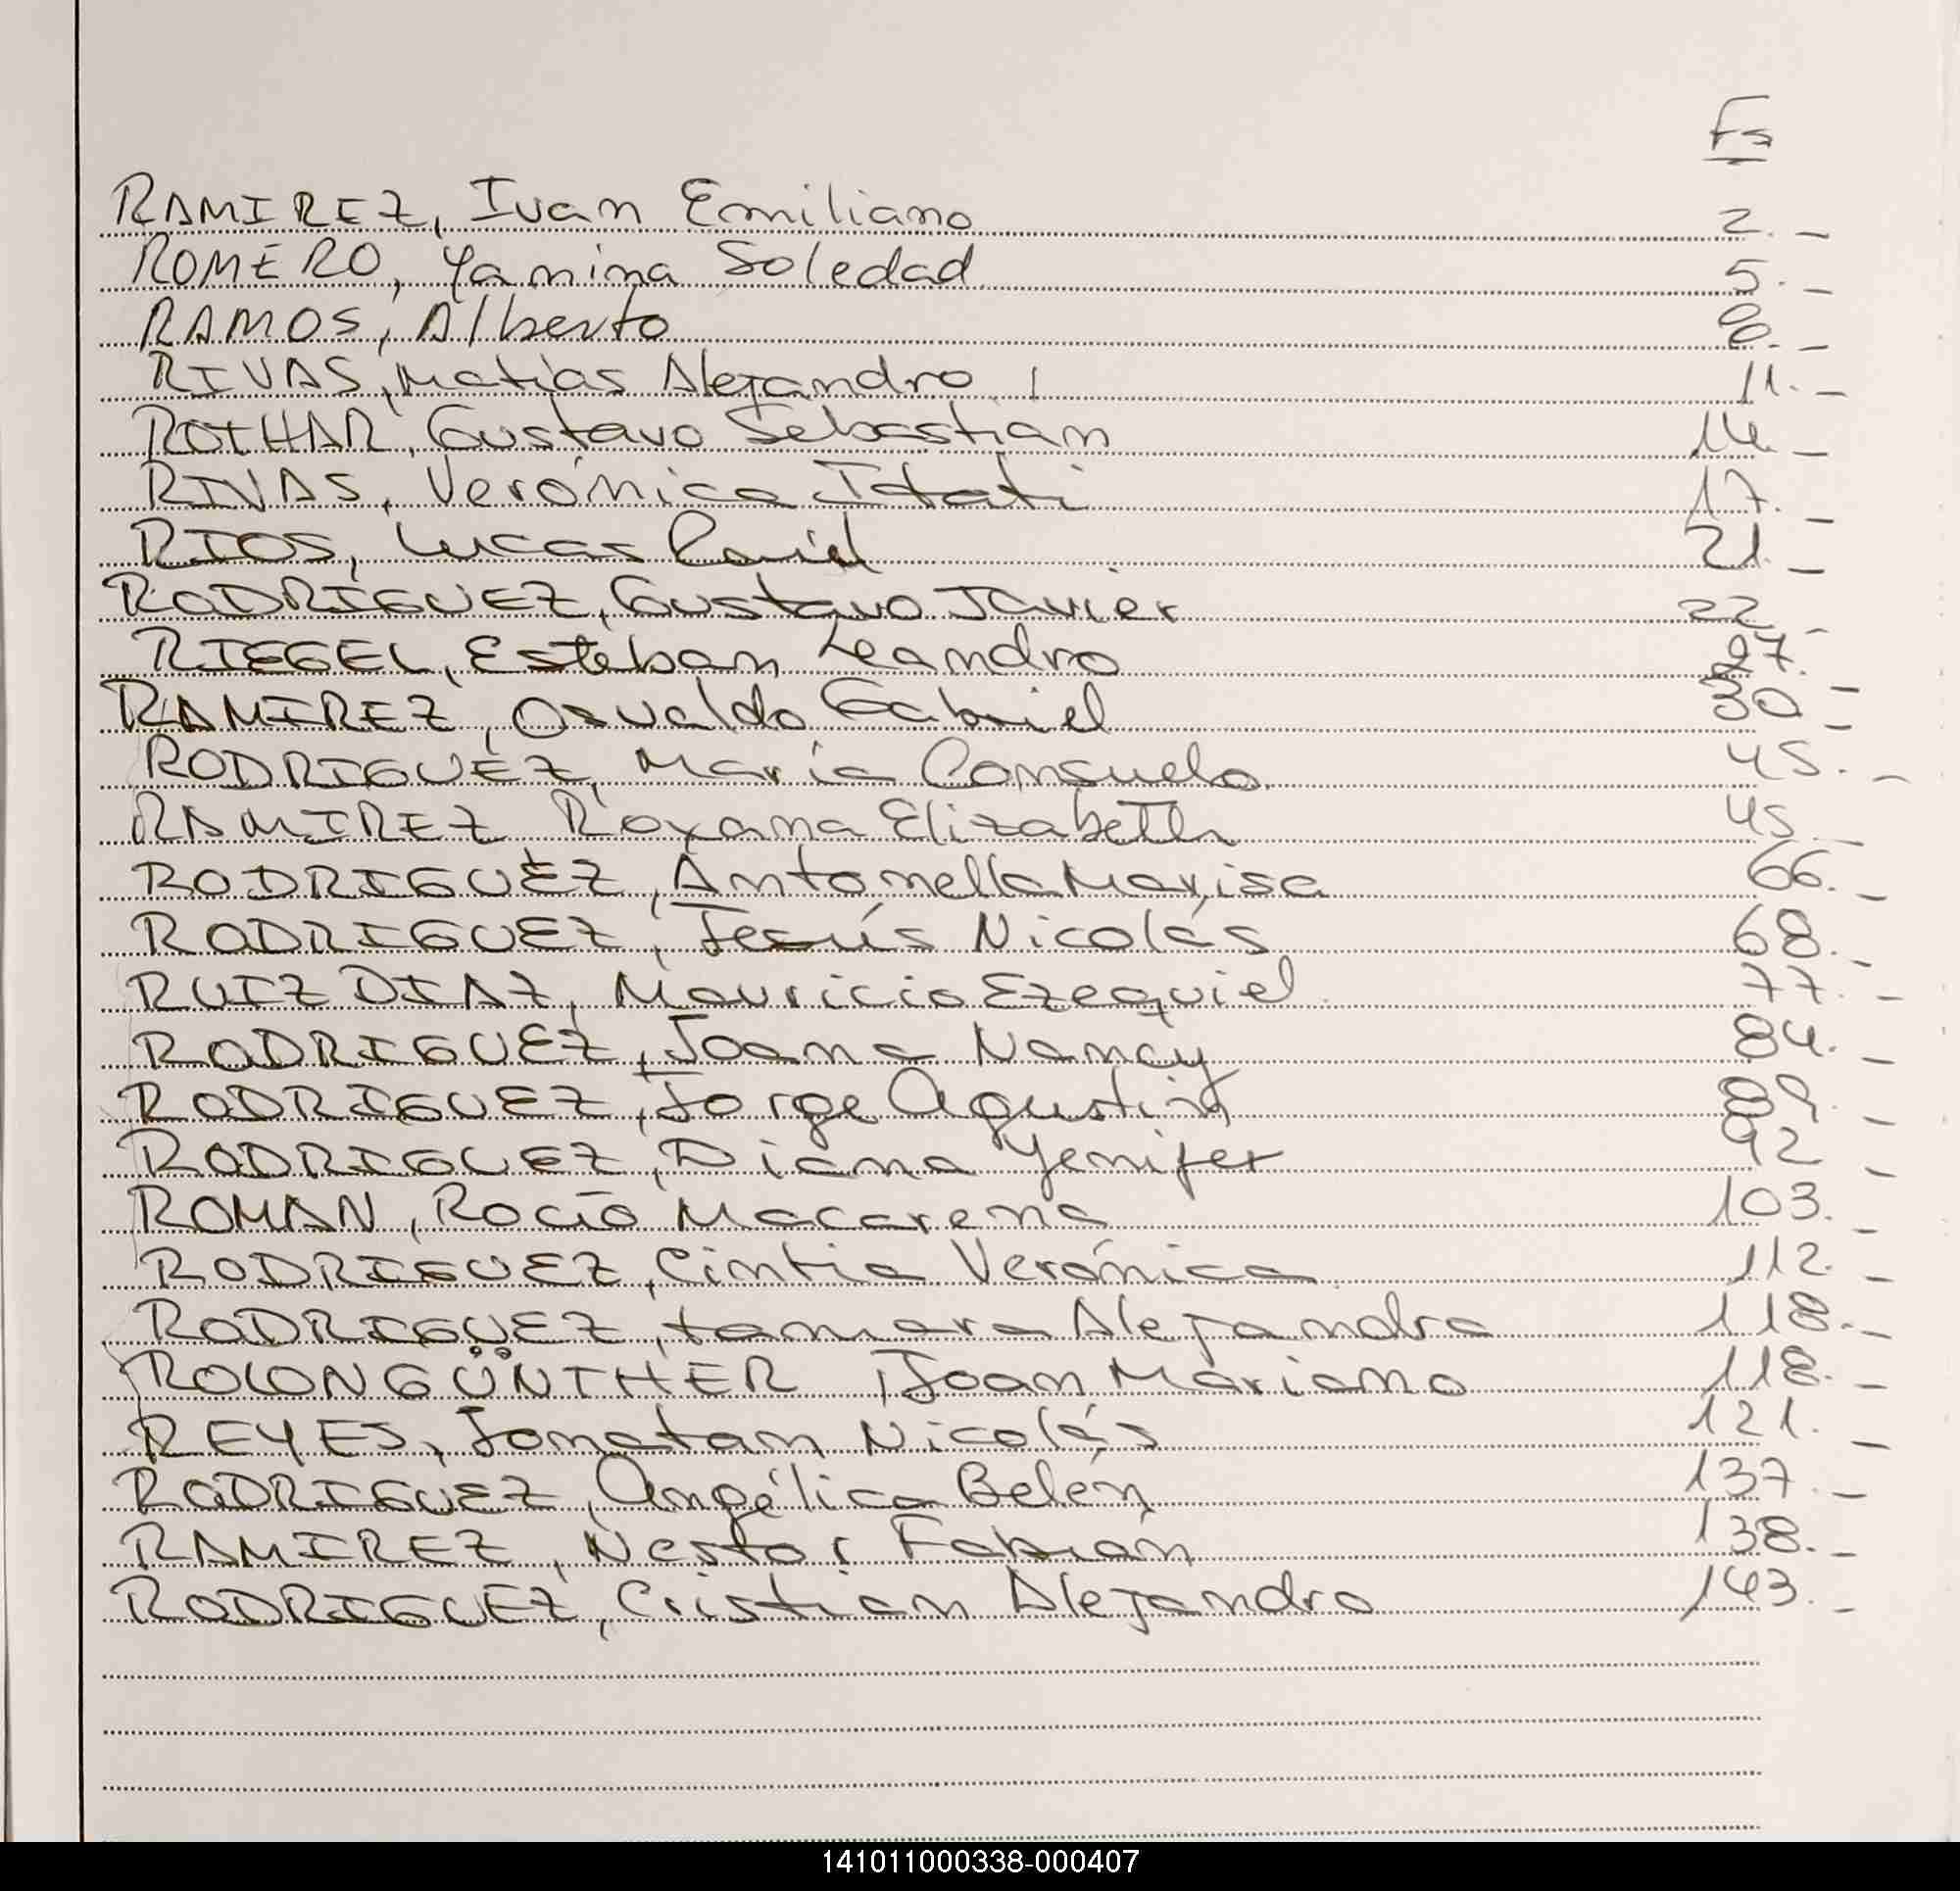 Fs
RAMIREZ, Ivan Emiliano 2. –
ROMERO, Yamina Soledad 5. –
RAMOS, Alberto 8. –
RIVAS, Matias Alejandro 11. –
ROTHAR, Gustavo Sebastian 14. –
RIVAS, Verónica Itati 17. –
RIOS, Lucas 21. –
RODRIGUEZ, Gustavo Javier 22 –
RIEGEL, Esteban Leandro 27. –
RAMIREZ, Osvaldo Gabriel 30 –
RODRIGUEZ, Maria Consuelo. 45. –
RAMIREZ Roxana Elizabeth 45. –
RODRIGUEZ, Antonella Marisa 66. –
RODRIGUEZ, Jesús Nicolás 68. –
RUIZ DIAZ, Mauricio Ezequiel 77. –
RODRIGUEZ, Joana Nancy 84. –
RODRIGUEZ, Jorge Agustin 89. –
RODRIGUEZ, Diana Yenifer 92 –
ROMAN, Rocio Macarena 103. –
RODRIGUEZ, Cintia Verónica 112. –
RODRIGUEZ, tamara Alejandra 118. –
ROLON GÜNTHER, Joan Mariano 118. –
REYES, Jonatan Nicolás 121. –
RODRIGUEZ, Angélica Belén 137. –
RAMIREZ, Nestor Fabián 138. –
RODRIGUEZ, Cristian Alejandro 143. –
141011000338-000407